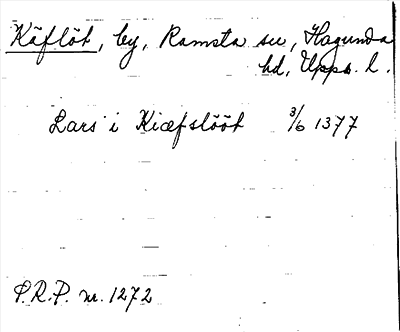 Käflöt, by, Ramsta sn, Hagunda
hd, Upps. l.
Lars i Kiæfslööt 3/6 1377
P.R.P. nr. 1272